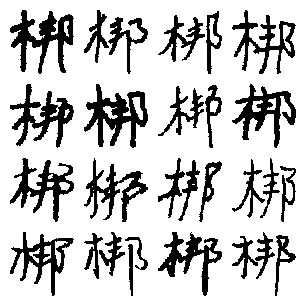 梆梆梆梆
梆梆梆梆
梆梆梆梆
梆梆梆梆